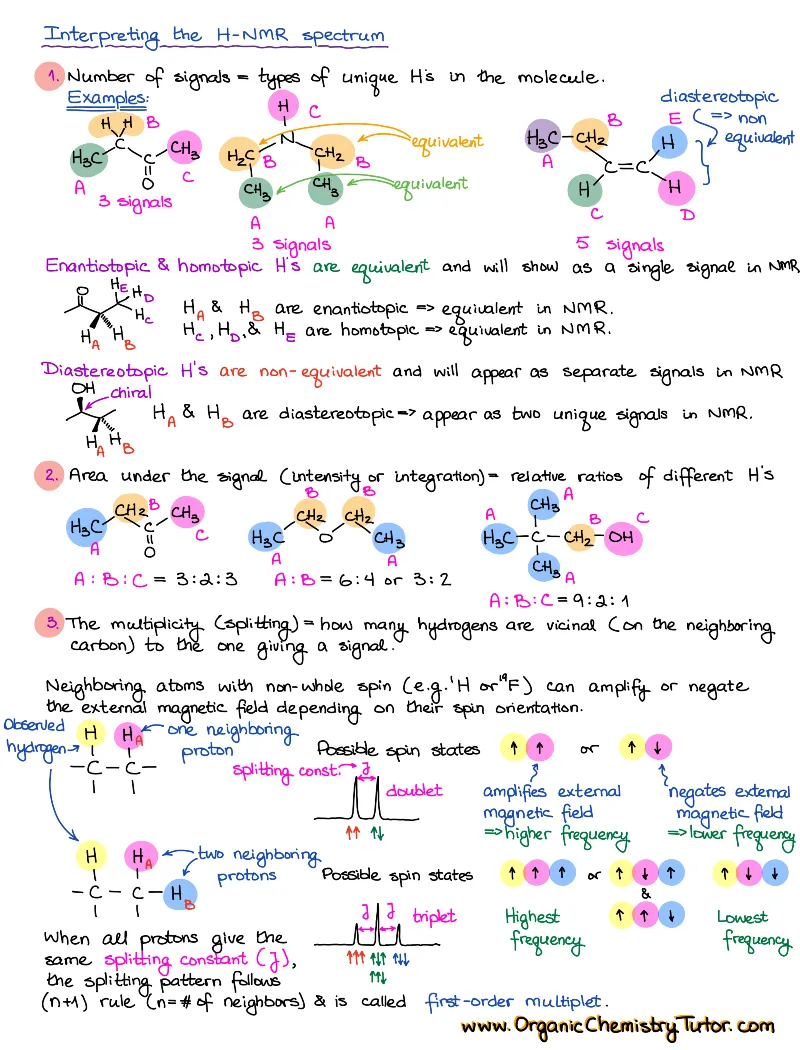 Interpreting the H-NMR spectrum
1. Number of signals = types of unique H's in the molecule.
Examples:
H H B
C
H3C
A
C
O
CH3
C
3 signals
H C
N
H2C B
CH2 B
CH3
A
CH3
A
equivalent
equivalent
3 signals
diastereotopic
=> non
equivalent
H3C
A
CH2
B
C=C
H
C
E
H
H
D
5 signals
Enantiotopic & homotopic H's are equivalent and will show as a single signal in NMR
O
HE
HD
HC
HA
HB
HA & HB are enantiotopic => equivalent in NMR.
HC, HD, & HE are homotopic => equivalent in NMR.
Diastereotopic H's are non-equivalent and will appear as separate signals in NMR
OH
chiral
HA HB
HA & HB are diastereotopic => appear as two unique signals in NMR.
2. Area under the signal (intensity or integration) = relative ratios of different H's
H3C
A
CH2 B
C
O
CH3
C
A : B : C = 3:2:3
B B
H3C
A
CH2
O
CH2
CH3
A
A : B = 6:4 or 3:2
CH3 A
A
H3C-C-CH2-OH
B C
CH3
A
A : B : C = 9:2:1
3. The multiplicity (splitting) = how many hydrogens are vicinal (on the neighboring
carbon) to the one giving a signal.
Neighboring atoms with non-whole spin (e.g. 1H or 19F) can amplify or negate
the external magnetic field depending on their spin orientation.
Observed
hydrogen
H HA
-C-C-
one neighboring
proton
splitting const. J
doublet
↑↑ ↑↓
Possible spin states
↑ ↑ or ↑ ↓
amplifies external
magnetic field
=> higher frequency
negates external
magnetic field
=> lower frequency
H HA
-C-C-HB
two neighboring
protons
Possible spin states
↑ ↑ ↑ or ↑ ↓ ↑
&
↑ ↑ ↓
↑ ↓ ↓
Highest
frequency
Lowest
frequency
J J triplet
↑↑↑ ↑↓↑ ↑↓↓
↑↑↓
When all protons give the
same splitting constant (J),
the splitting pattern follows
(n+1) rule (n = # of neighbors) & is called first-order multiplet.
www.OrganicChemistryTutor.com